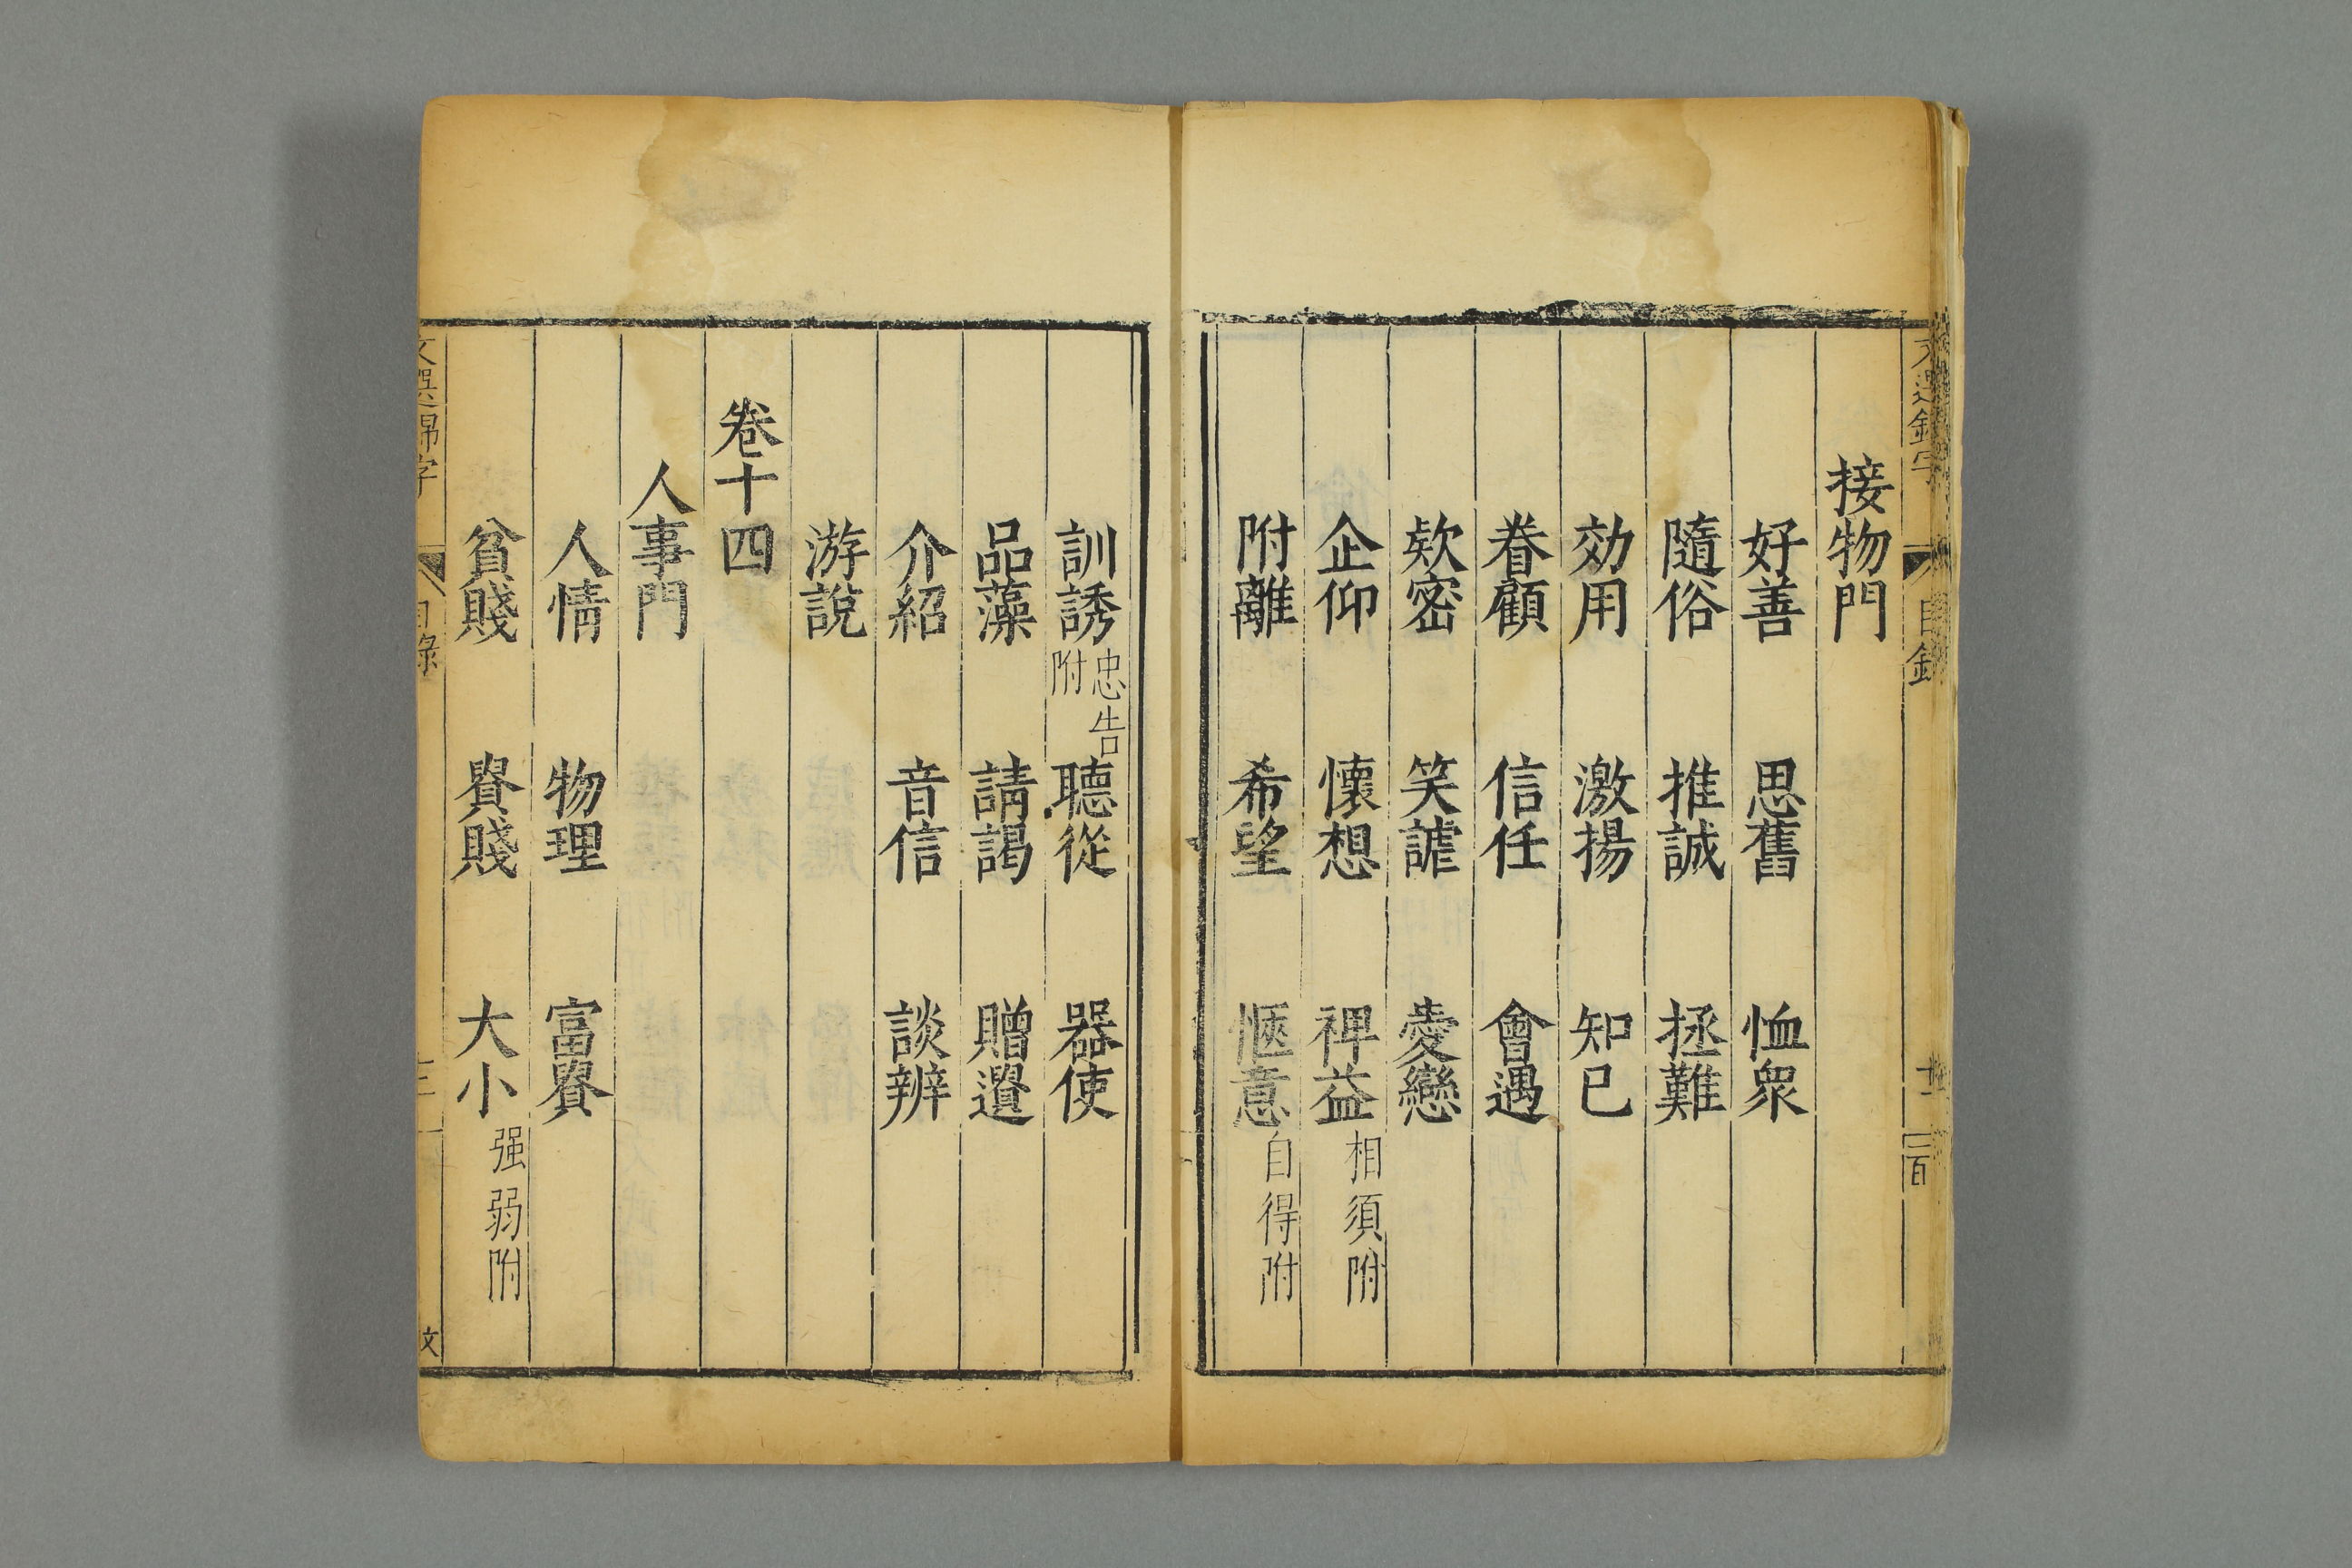 接物門
好善 思舊 恤衆
隨俗 推誠 拯難
効用 激揚 知已
眷顧 信任 會遇
欵密 笑謔 愛戀
企仰 懷想 裨益 相須附
附離 希望 愜意 自得附
訓誘 忠告附 聽從 器使
品藻 請謁 贈遺
介紹 音信 談辨
游說
卷十四
人事門
人情 物理 富貴
貧賤 貴賤 大小 强弱附
文選錦字 目錄